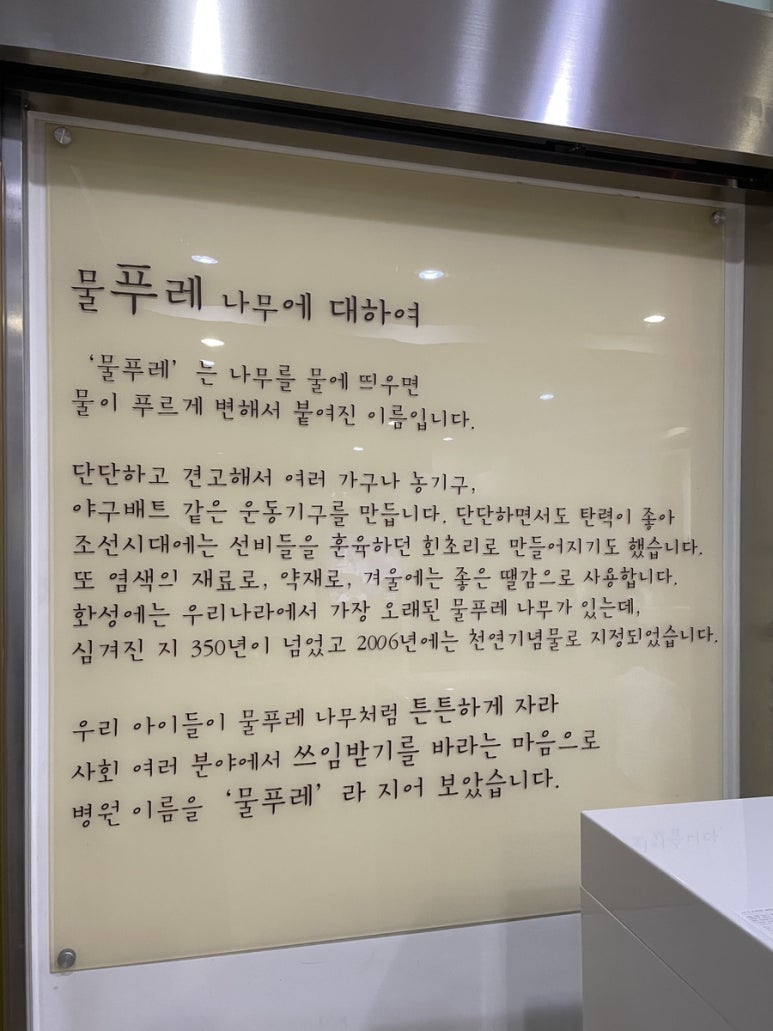 물푸레 나무에 대하여
‘물푸레’는 나무를 물에 띄우면
물이 푸르게 변해서 붙여진 이름입니다.
단단하고 견고해서 여러 가구나 농기구,
야구배트 같은 운동기구를 만듭니다. 단단하면서도 탄력이 좋아
조선시대에는 선비들을 훈육하던 회초리로 만들어지기도 했습니다.
또 염색의 재료로, 약재로, 겨울에는 좋은 땔감으로 사용합니다.
화성에는 우리나라에서 가장 오래된 물푸레 나무가 있는데,
심겨진 지 350년이 넘었고 2006년에는 천연기념물로 지정되었습니다.
우리 아이들이 물푸레 나무처럼 튼튼하게 자라
사회 여러 분야에서 쓰임받기를 바라는 마음으로
병원 이름을 ‘물푸레’라 지어 보았습니다.